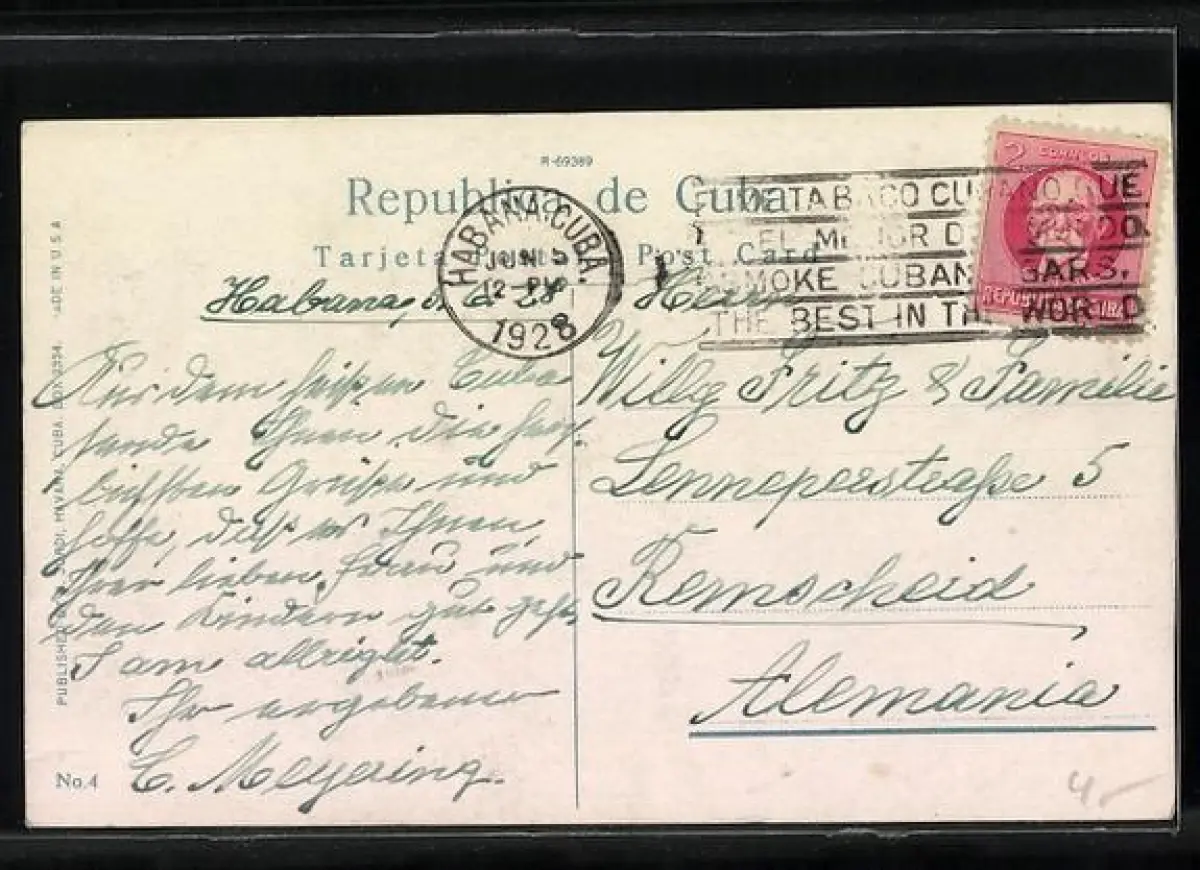 R-69389
Republica de Cuba
Tarjeta Postal Post Card
HABANA, CUBA.
JUN 5
12-PM
1928
TABACO CUBANO QUE
EL MEJOR D
SMOKE CUBAN CIGARS,
THE BEST IN THE WORLD
2
CORREOS
REPUBLICA
Habana,
Aus dem heißen Cuba
sende Ihnen die herz-
lichsten Grüße und
hoffe, daß es Ihnen,
Ihrer lieben Frau und
den Kindern gut geht.
I am allright.
Ihr ergebener
C. Meyering.
Herrn
Willy Fritz & Familie
Lenneperstraße 5
Remscheid
Alemania
MADE IN U.S.A
PUBLISHED JORDI, HAVANA, CUBA. BOX 2954.
No. 4
4.-